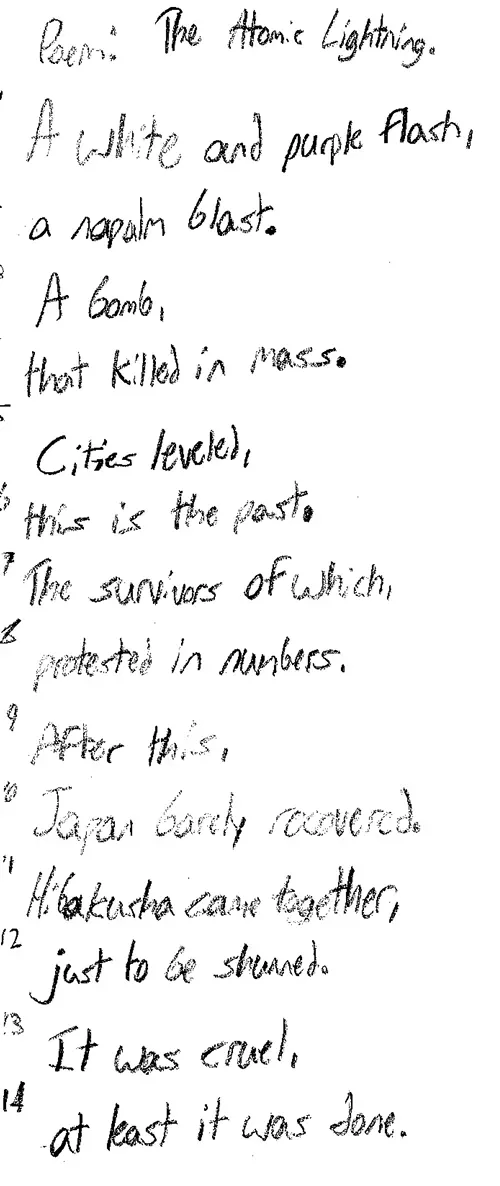 Poem: The Atomic Lightning.
A white and purple flash,
a napalm blast.
3 A bomb,
that killed in mass.
5 Cities leveled,
6 this is the past.
7 The survivors of which,
8 protested in numbers.
9 After this,
10 Japan barely recovered.
11 Hibakusha came together,
12 just to be shunned.
13 It was cruel,
14 at least it was done.